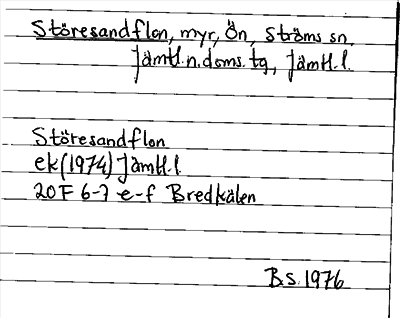 Störesandflon, myr, Ön, Ströms sn,
Jämtl. n. doms. tg, Jämtl. l.
Störesandflon
ek (1974) Jämtl. l.
20F 6-7 e-f Bredkälen
B.S. 1976